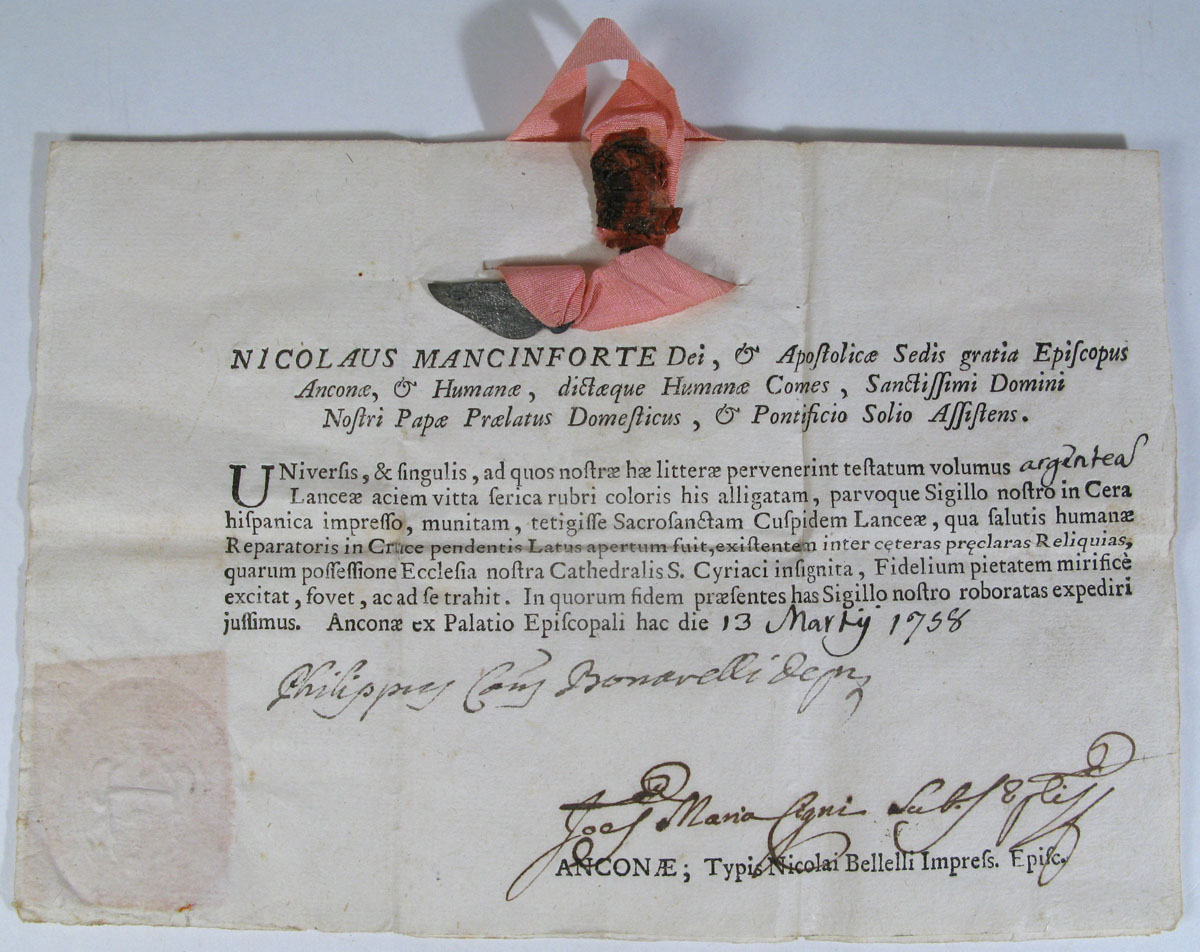 NICOLAUS MANCINFORTE Dei, & Apoſtolicæ Sedis gratia Epiſcopus
Anconæ, & Humanæ, dictæque Humanæ Comes, Sanctiſſimi Domini
Noſtri Papæ Prælatus Domeſticus, & Pontificio Solio Aſſiſtens.
UNiverſis, & ſingulis, ad quos noſtræ hæ litteræ pervenerint teſtatum volumus argenteaſ
Lanceæ aciem vitta ſerica rubri coloris his alligatam, parvoque Sigillo noſtro in Cera
hiſpanica impreſſo, munitam, tetigiſſe Sacroſanctam Cuſpidem Lanceæ, qua ſalutis humanæ
Reparatoris in Cruce pendentis Latus apertum fuit, exiſtentem inter cęteras pręclaras Reliquias,
quarum poſſeſſione Eccleſia noſtra Cathedralis S. Cyriaci inſignita, Fidelium pietatem mirificè
excitat, fovet, ac ad ſe trahit. In quorum fidem præſentes has Sigillo noſtro roboratas expediri
juſſimus. Anconæ ex Palatio Epiſcopali hac die 13 Martij 1758
Philippus Bonarelli
Maria
ANCONÆ; Typis Nicolai Bellelli Impreſſ. Epiſc.